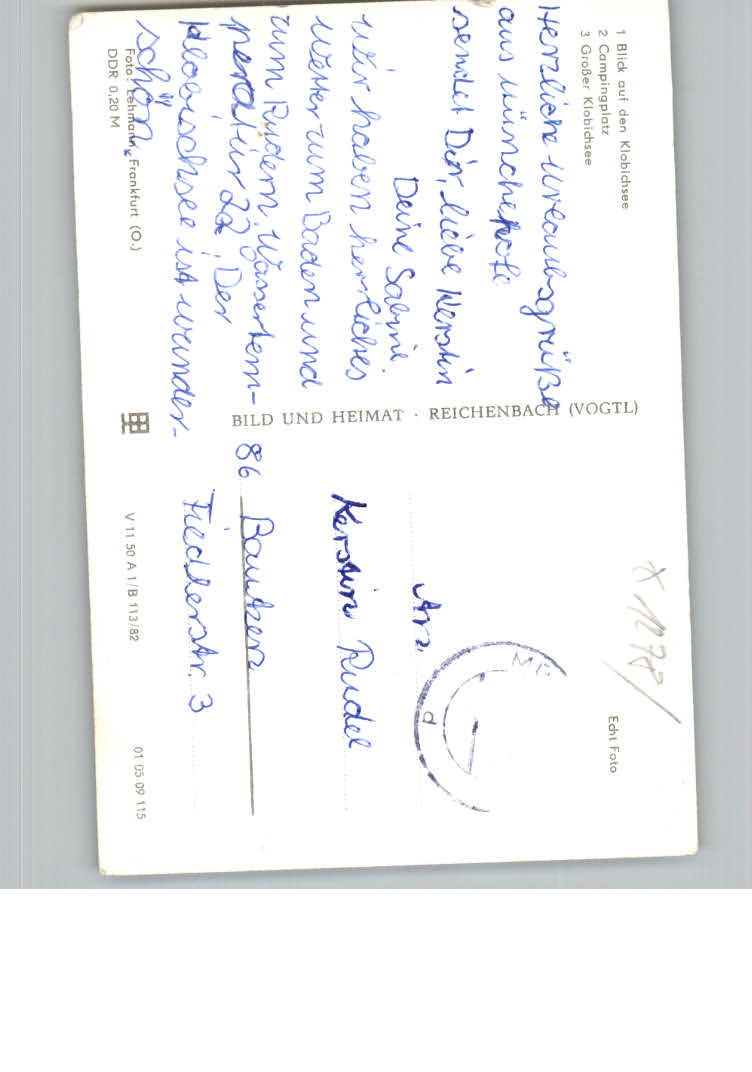 1 Blick auf den Klobichsee
2 Campingplatz
3 Großer Klobichsee
Herzliche Urlaubsgrüße
aus Münchehofe
sendet Dir, liebe Kerstin
Deine Sabine.
Wir haben herrliches
Wetter zum Baden und
zum Rudern. Wassertem-
peratur 22°. Der
Klobichsee ist wunder-
schön.
Foto: Lehmann, Frankfurt (O.)
DDR 0,20 M
BILD UND HEIMAT · REICHENBACH (VOGTL)
X 1278/
Echt Foto
An
Kerstin Rudel
86 Bautzen
Fiedlerstr. 3
V 11 50 A 1/B 113/82
01 05 09 115